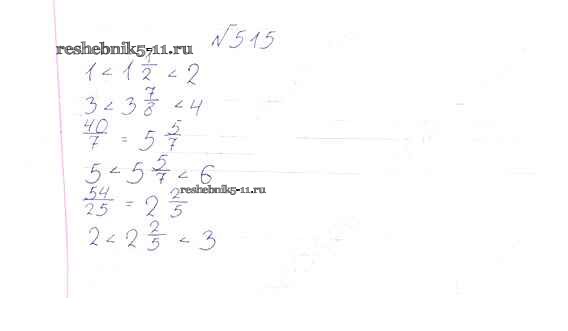 №515
reshebnik5-11.ru
1 < 1 1/2 < 2
3 < 3 7/8 < 4
40/7 = 5 5/7
5 < 5 5/7 < 6
reshebnik5-11.ru
54/25 = 2 2/5
2 < 2 2/5 < 3